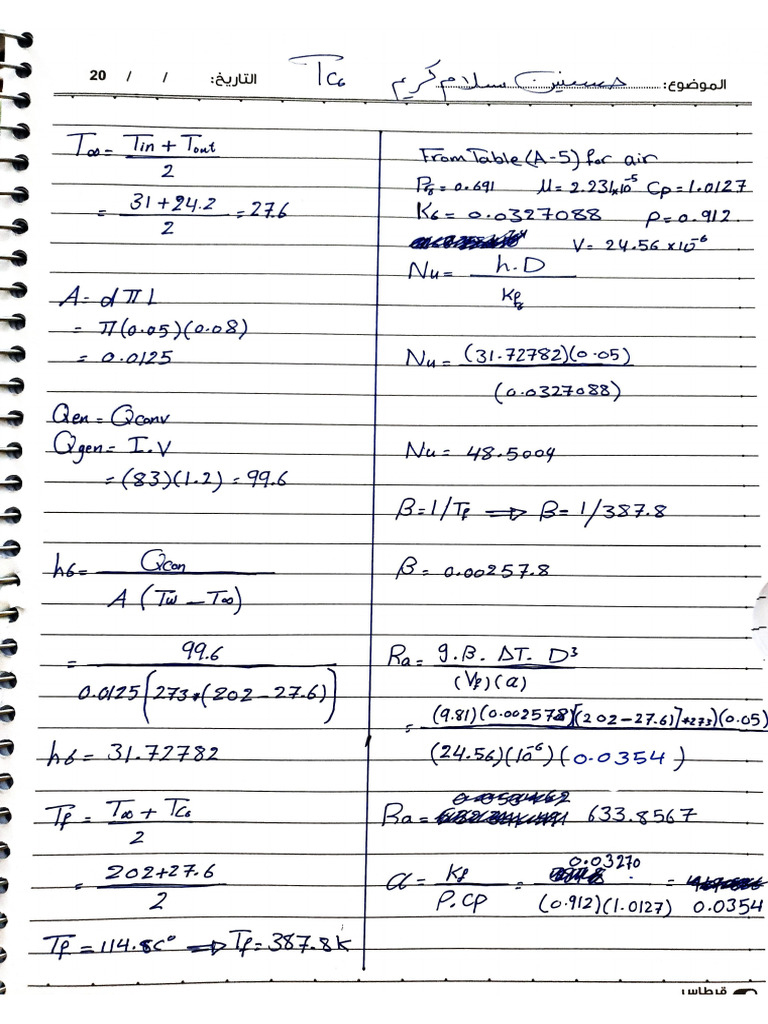 الموضوع: حسين سلام كريم Tc6 التاريخ: / / 20
T∞ = Tin + Tout / 2
= 31 + 24.2 / 2 = 27.6
A = d π L
= π(0.05)(0.08)
= 0.0125
Qen = Qconv
Qgen = I.V
= (83)(1.2) = 99.6
h6 = Qcon / A (Tw - T∞)
= 99.6 / 0.0125 [273+(202-27.6)]
h6 = 31.72782
Tf = T∞ + Tc6 / 2
= 202+27.6 / 2
Tf = 114.8C° ⟹ Tf = 387.8k
From Table (A-5) for air
Pr = 0.691 M = 2.231x10^-5 Cp = 1.0127
K6 = 0.0327088 ρ = 0.912
V = 24.56 x10^-6
Nu = h.D / Kf
Nu = (31.72782)(0.05) / (0.0327088)
Nu = 48.5004
β = 1/Tf ⟹ β = 1/387.8
β = 0.00257.8
Ra = g.β. ΔT. D³ / (Vf)(α)
= (9.81)(0.002578)[(202-27.6)+273)(0.05) / (24.56)(10^-6)(0.0354)
Ra = 633.8567
α = Kf / ρ.cp = 0.03270 / (0.912)(1.0127) = 0.0354
قرطاس